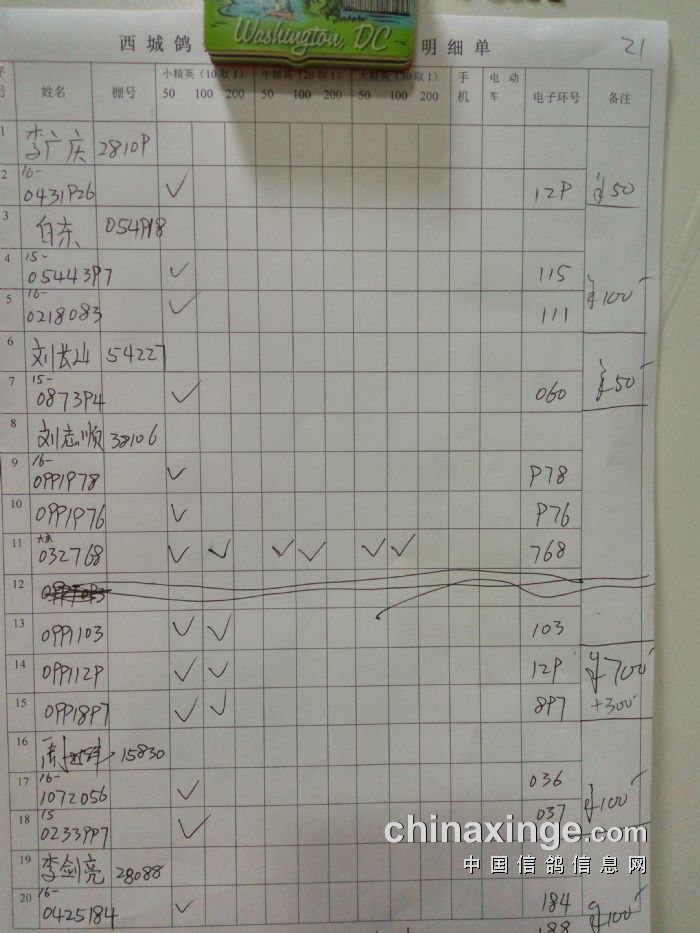 西城鸽
Washington, DC
明细单
21
序号 姓名 棚号 小精英（10取1） 50 100 200 中精英（20取1） 50 100 200 大精英（30取1） 50 100 200 手机 电动车 电子环号 备注
1 李广庆 28109
2 16-0431926 ✓ 129 ¥50
3 白东 054998
4 15-0544397 ✓ 115
5 16-0218083 ✓ 111 ¥100
6 刘长山 54227
7 15-087394 ✓ 060 ¥50
8 刘志顺 38106
9 16-0991978 ✓ 978
10 0991976 ✓ 976
11 032768 ✓ ✓ ✓ ✓ ✓ ✓ 768
12
13 0991103 ✓ ✓ 103
14 0991129 ✓ ✓ 129 ¥700
15 0991897 ✓ ✓ 897 +300
16 15830
17 16-1072056 ✓ 036
18 15 0233997 ✓ 037 ¥100
19 李剑亮 28088
20 16-0425184 ✓ 184 ¥100
188
chinaxinge.com
中国信鸽信息网